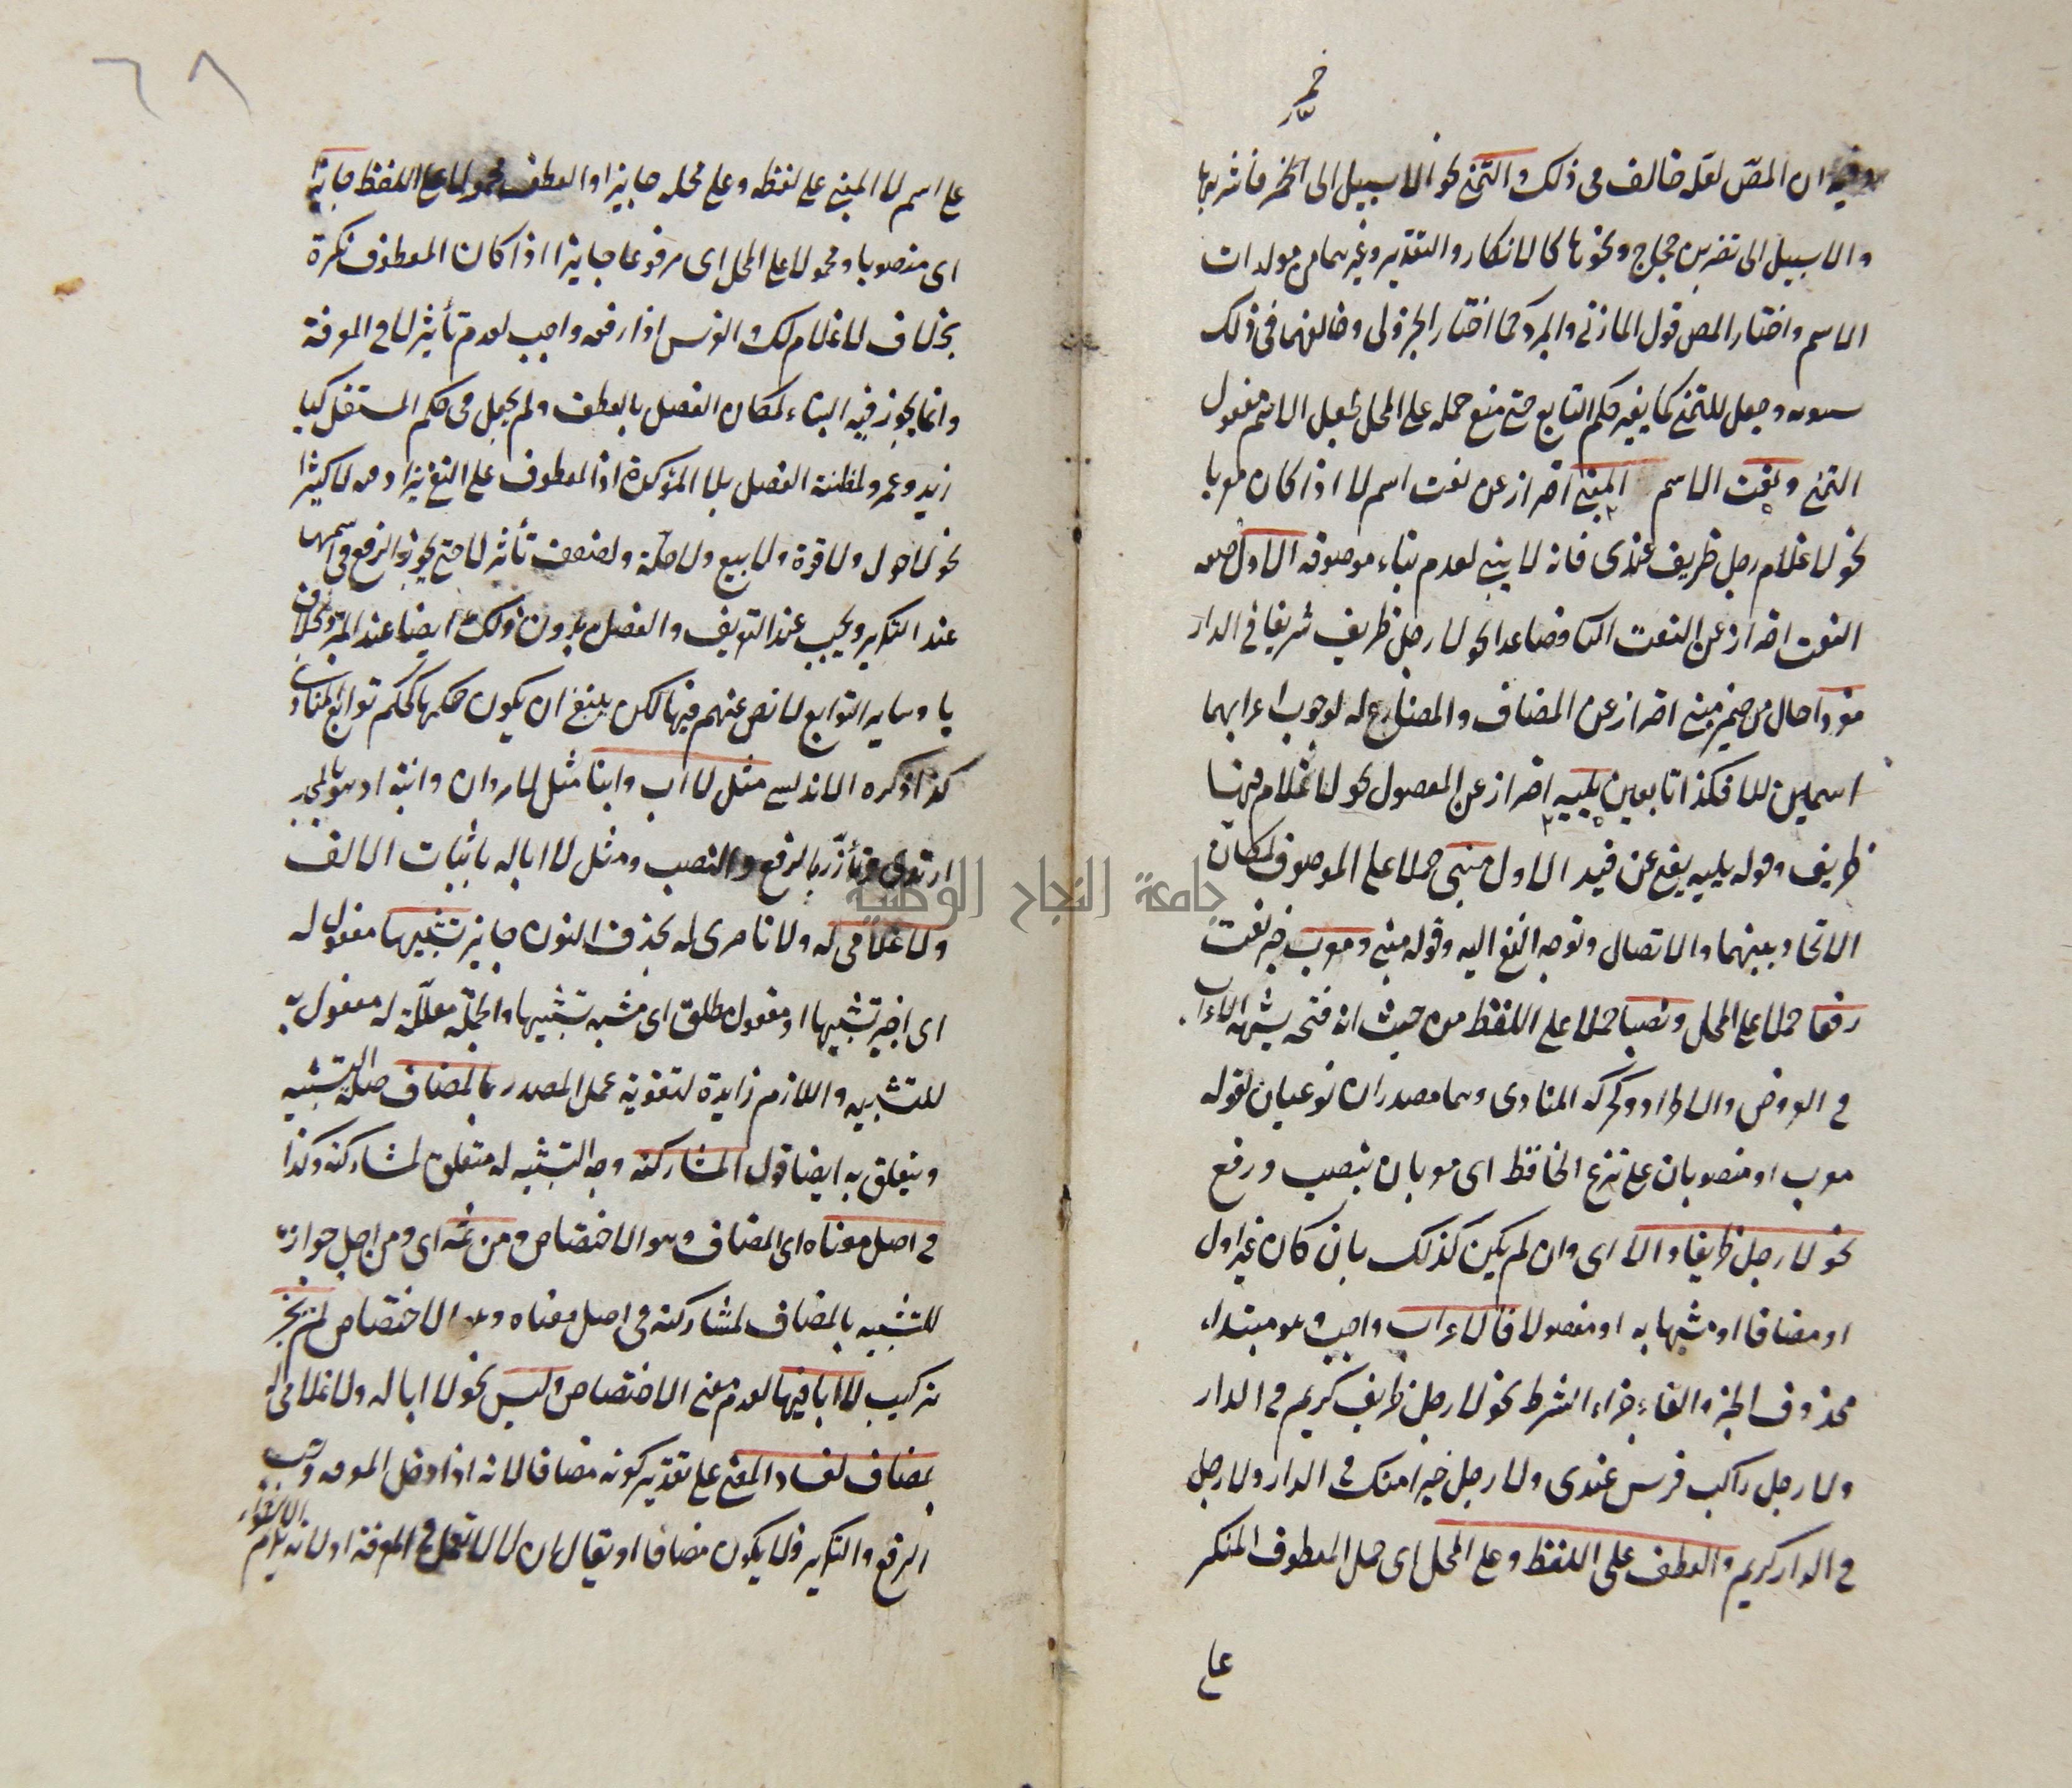 خمر
وفيه ان المصّ لعلّه خالف فى ذلك والتمنى نحو الا سبيل الى الخمر فاشربها
والا سبيل الى نضر بن حجاج ونحوها كالانكار والتقدير وغيرهما من مولدات
الاسم واختار المص قول المازنى والمبرد كما اختار الجزولى وخالفهما فى ذلك
سيبويه وجعل للتمنى كما يغير حكم التابع حتى منع حمله على المحل لجعل الاسم مفعول
التمنى ونعت الاسم المبنى احتراز عن نعت اسم لا اذا كان معربا
نحو لا غلام رجل ظريف عندى فانه لا يبنى لعدم بناء موصوفه الاول صفه
النعت احتراز عن النعت الثا فصاعدا نحو لا رجل ظريف شريفا فى الدار
مفردا حال من ضمير مبنى احتراز عن المضاف والمضارع له لوجوب اعرابهما
اسمين للا فكذا تابعين يليه احتراز عن المفصول نحو لا غلام فيها
ظريف وقوله يليه يغنى عن قيد الاول مبنى حملا على الموصوف لمكان
الاتحاد بينهما والاتصال وتوجه النفى اليه وقوله مبنى ومعرب خبر نعت
رفعا حملا على المحل ونصبا حملا على اللفظ من حيث ان فتحه يشبه الاعراب
فى العروض والاطراد وكحركه المنادى وهما مصدران نوعيان لقوله
معرب او منصوبان على نزع الخافظ اى معربان بنصب ورفع
نحو لا رجل ظريفا والا اى وان لم يكن كذلك بان كان غير اول
او مضافا او مشبها به او مفصولا فالاعراب واجب وهو مبتداء
محذوف الخبر والفاء جزاء الشرط نحو لا رجل ظريف كريم فى الدار
ولا رجل راكب فرس عندى ولا رجل خيرا منك فى الدار ولا رجل
فى الدار كريم والعطف على اللفظ وعلى المحل اى حمل المعطوف المنكر
على
٦٨
على اسم لا المبنى على لفظه وعلى محله جايزا والعطف محمولا على اللفظ جايز
اى منصوبا ومحمولا على المحل اى مرفوعا جايزا اذا كان المعطوف نكرة
بخلاف لا غلام لك والفرس اذا رفعه واجب لعدم تأثير لا فى المعرفة
وانما يجوز فيه البناء لمكان الفصل بالعطف ولم يجعل فى حكم المستقل كيا
زيد وعمرو لمظنة الفصل بلا المؤكدة اذ المعطوف على النفى يزاد فيه لا كثيرا
نحو لا حول ولا قوة ولا بيع ولا خلّة ولضعف تأثر لا حتى يجوز الرفع فى اسمها
عند التكرير ويجب عند التعريف والفصل بدون ذلك ايضا عند المبرد بخلاف
يا وساير التوابع لا نص عنهم فيها لكن ينبغى ان يكون حكمها كحكم توابع المنادى
كذا ذكره الاندلسى مثل لا اب وابنا مثل لا مروان وابنه اذ هو بالمجد
ارتدى وتأزّر بالرفع والنصب ومثل لا ابا له باثبات الالف
ولا غلامى له ولا ناصرى له بحذف النون جايز تشبيها مفعول له
اى اجيز تشبيها او مفعول مطلق اى مشبه تشبيها والجملة معللة له مفعول به
للتشبيه واللازم زايدة لتقوية عمل المصدر بالمضاف صلة التشبيه
ويتعلق به ايضا قول المشاركته وجه التشبيه له متعلق لمشاركته وكذا
فى اصل معناه اى المضاف وهو الاختصاص ومن ثمه اى ومن اجل جوازه
للتشبيه بالمضاف لمشاركته فى اصل معناه وهو الاختصاص لم يجز
تركيب لا ابا فيها لعدم معنى الاختصاص وليس نحو لا ابا له ولا غلامى له
بمضاف لفساد المعنى على تقدير كونه مضافا لانه اذا دخل المعرفه وجب
الرفع والتكرير فلا يكون مضافا او يقال ان لا لا تعمل فى المعرفة او لانه يلزم
جامعة النجاح الوطنية